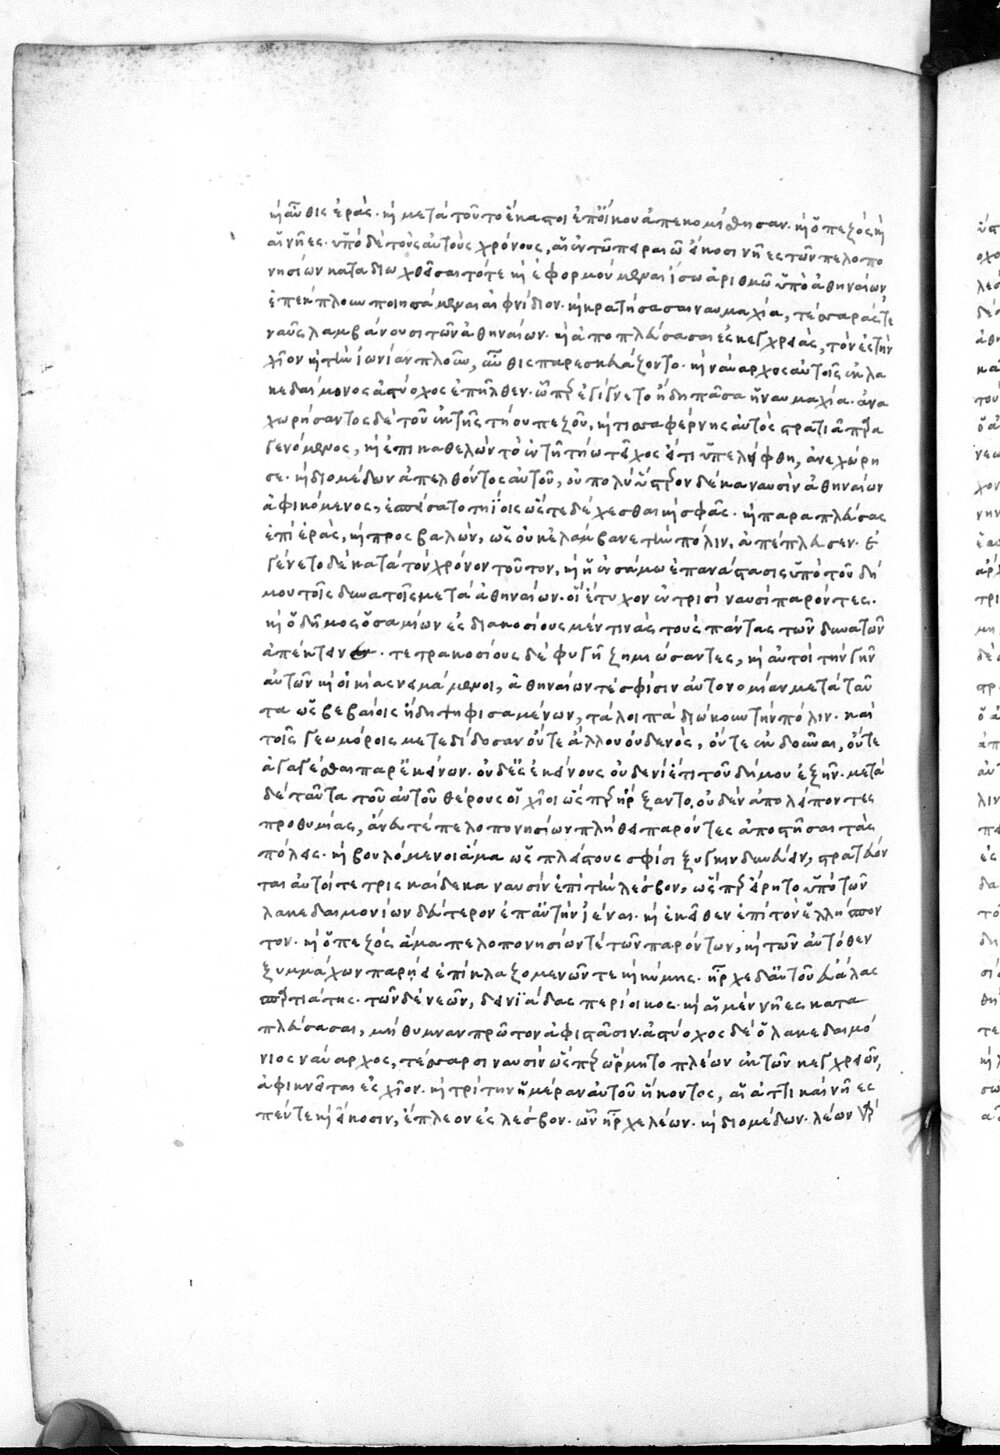 καὶ αὖθις ἐράς· καὶ μετὰ τοῦτο ἕκαστοι ἐπ' οἴκου ἀπεκομίσθησαν· καὶ ὁ πεζὸς καὶ
αἱ νῆες· ὑπὸ δὲ τοὺς αὐτοὺς χρόνους, αἱ ἐν τῶ πειραιῶ εἴκοσι νῆες τῶν πελοπο
νησίων καταδιωχθεῖσαι τότε καὶ ἐφορμούμεναι ἴσω ἀριθμῶ ὑπὸ ἀθηναίων,
ἐπέκπλουν ποιησάμεναι αἰφνίδιον· καὶ κρατήσασαι ναυμαχία, τέσσαράς τε
ναῦς λαμβάνουσι τῶν ἀθηναίων· καὶ ἀποπλεύσασαι ἐς κεγχρειὰς, τὸν ἐς τὴν
χῖον καὶ τὴν ἰωνίαν πλοῦν, αὖθις παρεσκευάζοντο· καὶ ναύαρχος αὐτοῖς ἐκ λα
κεδαίμονος ἀστύοχος ἐπῆλθεν· ὧπερ ἐγίγνετο ἤδη πᾶσα ἡ ναυμαχία· ἀνα
χωρήσαντος δὲ τοῦ ἐκ τῆς τήου πεζοῦ, καὶ τισσαφέρνης αὐτὸς στρατιᾶ παρα
γενόμενος, καὶ ἐπικαθελὼν τὸ ἐν τῆ τήω τεῖχος εἴ τι ὑπελείφθη, ἀνεχώρη
σε· καὶ διομέδων ἀπελθόντος αὐτοῦ, οὐ πολὺ ὕστερον δέκα ναυσὶν ἀθηναίων
ἀφικόμενος, ἐσπείσατο τηΐοις ὥστε δέχεσθαι καὶ σφᾶς· καὶ παραπλεύσας
ἐπὶ ἐράς, καὶ προσβαλών, ὡς οὐκ ἐλάμβανε τὴν πόλιν, ἀπέπλευσεν· ἐ
γένετο δὲ κατὰ τὸν χρόνον τοῦτον, καὶ ἡ ἐν σάμω ἐπανάστασις ὑπὸ τοῦ δή
μου τοῖς δυνατοῖς μετὰ ἀθηναίων· οἳ ἔτυχον ἐν τρισὶ ναυσὶ παρόντες·
καὶ ὁ δῆμος ὁ σαμίων ἐς διακοσίους μέν τινας τοὺς πάντας τῶν δυνατῶν
ἀπέκτεινε· τετρακοσίους δὲ φυγῆ ζημιώσαντες, καὶ αὐτοὶ τὴν γῆν
αὐτῶν καὶ οἰκίας νειμάμενοι, ἀθηναίων τέ σφίσιν αὐτονομίαν μετὰ ταῦ
τα ὡς βεβαίοις ἤδη ψηφισαμένων, τὰ λοιπὰ διώκουν τὴν πόλιν· καὶ
τοῖς γεωμόροις μετεδίδοσαν οὔτε ἄλλου οὐδενός, οὔτε ἐκδοῦναι, οὔτε
ἀγαγέσθαι παρ' ἐκείνων· οὐδ' ἐς ἐκείνους οὐδενὶ ἔτι τοῦ δήμου ἐξῆν· μετὰ
δὲ ταῦτα τοῦ αὐτοῦ θέρους οἱ χῖοι ὥσπερ ἤρξαντο, οὐδὲν ἀπολείποντες
προθυμίας, ἄνευ τε πελοπονησίων πλήθει παρόντες ἀποστῆσαι τὰς
πόλεις· καὶ βουλόμενοι ἅμα ὡς πλείστους σφίσι ξυγκινδυνεύειν, στρατεύον
ται αὐτοί τε τρισκαίδεκα ναυσὶν ἐπὶ τὴν λέσβον, ὥσπερ εἴρητο ὑπὸ τῶν
λακεδαιμονίων δεύτερον ἐπ' αὐτὴν ἰέναι· καὶ ἐκεῖθεν ἐπὶ τὸν ἑλλήσπον
τον· καὶ ὁ πεζὸς ἅμα πελοπονησίων τε τῶν παρόντων, καὶ τῶν αὐτόθεν
ξυμμάχων παρήει ἐπὶ κλαζομενῶν τε καὶ κύμης· ἦρχε δ' αὐτοῦ εὐάλας
σπαρτιάτης· τῶν δὲ νεῶν, δεινιάδας περίοικος· καὶ αἱ μὲν νῆες κατα
πλεύσασαι, μήθυμναν πρῶτον ἀφιστᾶσιν· ἀστύοχος δὲ ὁ λακεδαιμό
νιος ναύαρχος, τέσσαρσι ναυσὶν ὥσπερ ὥρμητο πλέων ἐκ τῶν κεγχρειῶν,
ἀφικνεῖται ἐς χῖον· καὶ τρίτην ἡμέραν αὐτοῦ ἥκοντος, αἱ ἀττικαὶ νῆες
πέντε καὶ εἴκοσιν, ἔπλεον ἐς λέσβον· ὧν ἦρχε λέων· καὶ διομέδων· λέων γὰρ